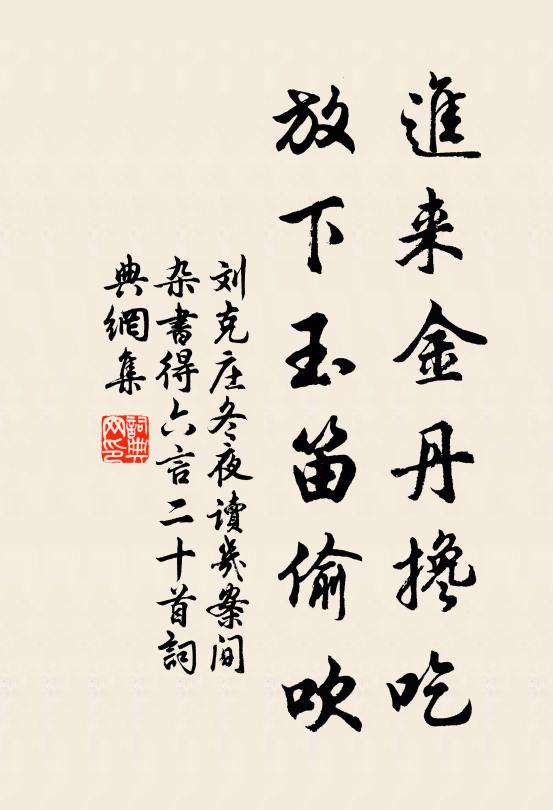 進来金丹搀吃
放下玉笛偷吹
刘克庄冬夜讀幾案间
杂書得六言二十首詞
典網集
詞典网印